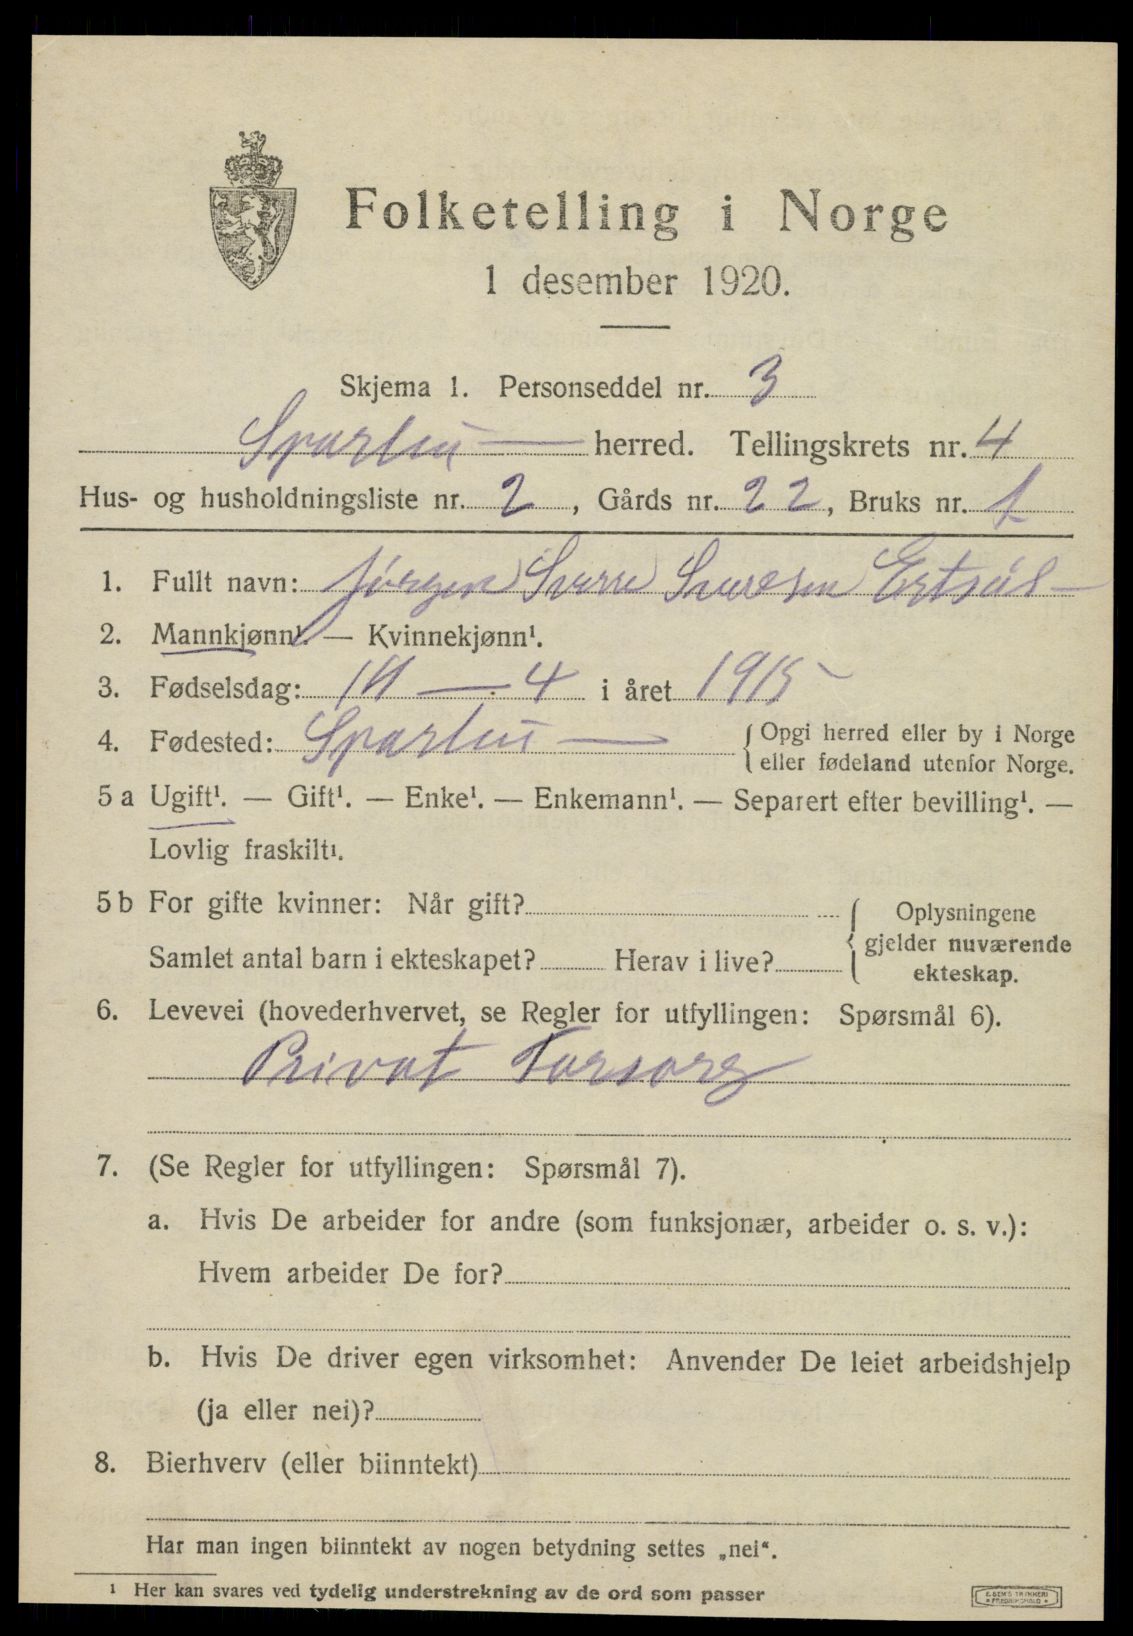 Folketelling i Norge
1 desember 1920.
Skjema 1. Personseddel nr. 3
Sparbu herred. Tellingskrets nr. 4
Hus- og husholdningsliste nr. 2, Gårds nr. 22, Bruks nr. 1
1. Fullt navn: Jørgen Sverre Ertsås
2. Mannkjønn¹. — Kvinnekjønn¹.
3. Fødselsdag: 4 i året 1915
4. Fødested: Sparbu {Opgi herred eller by i Norge
eller fødeland utenfor Norge.
5 a Ugift¹. — Gift¹. — Enke¹. — Enkemann¹. — Separert efter bevilling¹. —
Lovlig fraskilt¹.
5 b For gifte kvinner: Når gift?
Samlet antal barn i ekteskapet? Herav i live?
{Oplysningene
gjelder nuværende
ekteskap.
6. Levevei (hovederhvervet, se Regler for utfyllingen: Spørsmål 6).
Privat Forsorg
7. (Se Regler for utfyllingen: Spørsmål 7).
a. Hvis De arbeider for andre (som funksjonær, arbeider o. s. v.):
Hvem arbeider De for?
b. Hvis De driver egen virksomhet: Anvender De leiet arbeidshjelp
(ja eller nei)?
8. Bierhverv (eller biinntekt)
Har man ingen biinntekt av nogen betydning settes „nei“.
¹ Her kan svares ved tydelig understrekning av de ord som passer